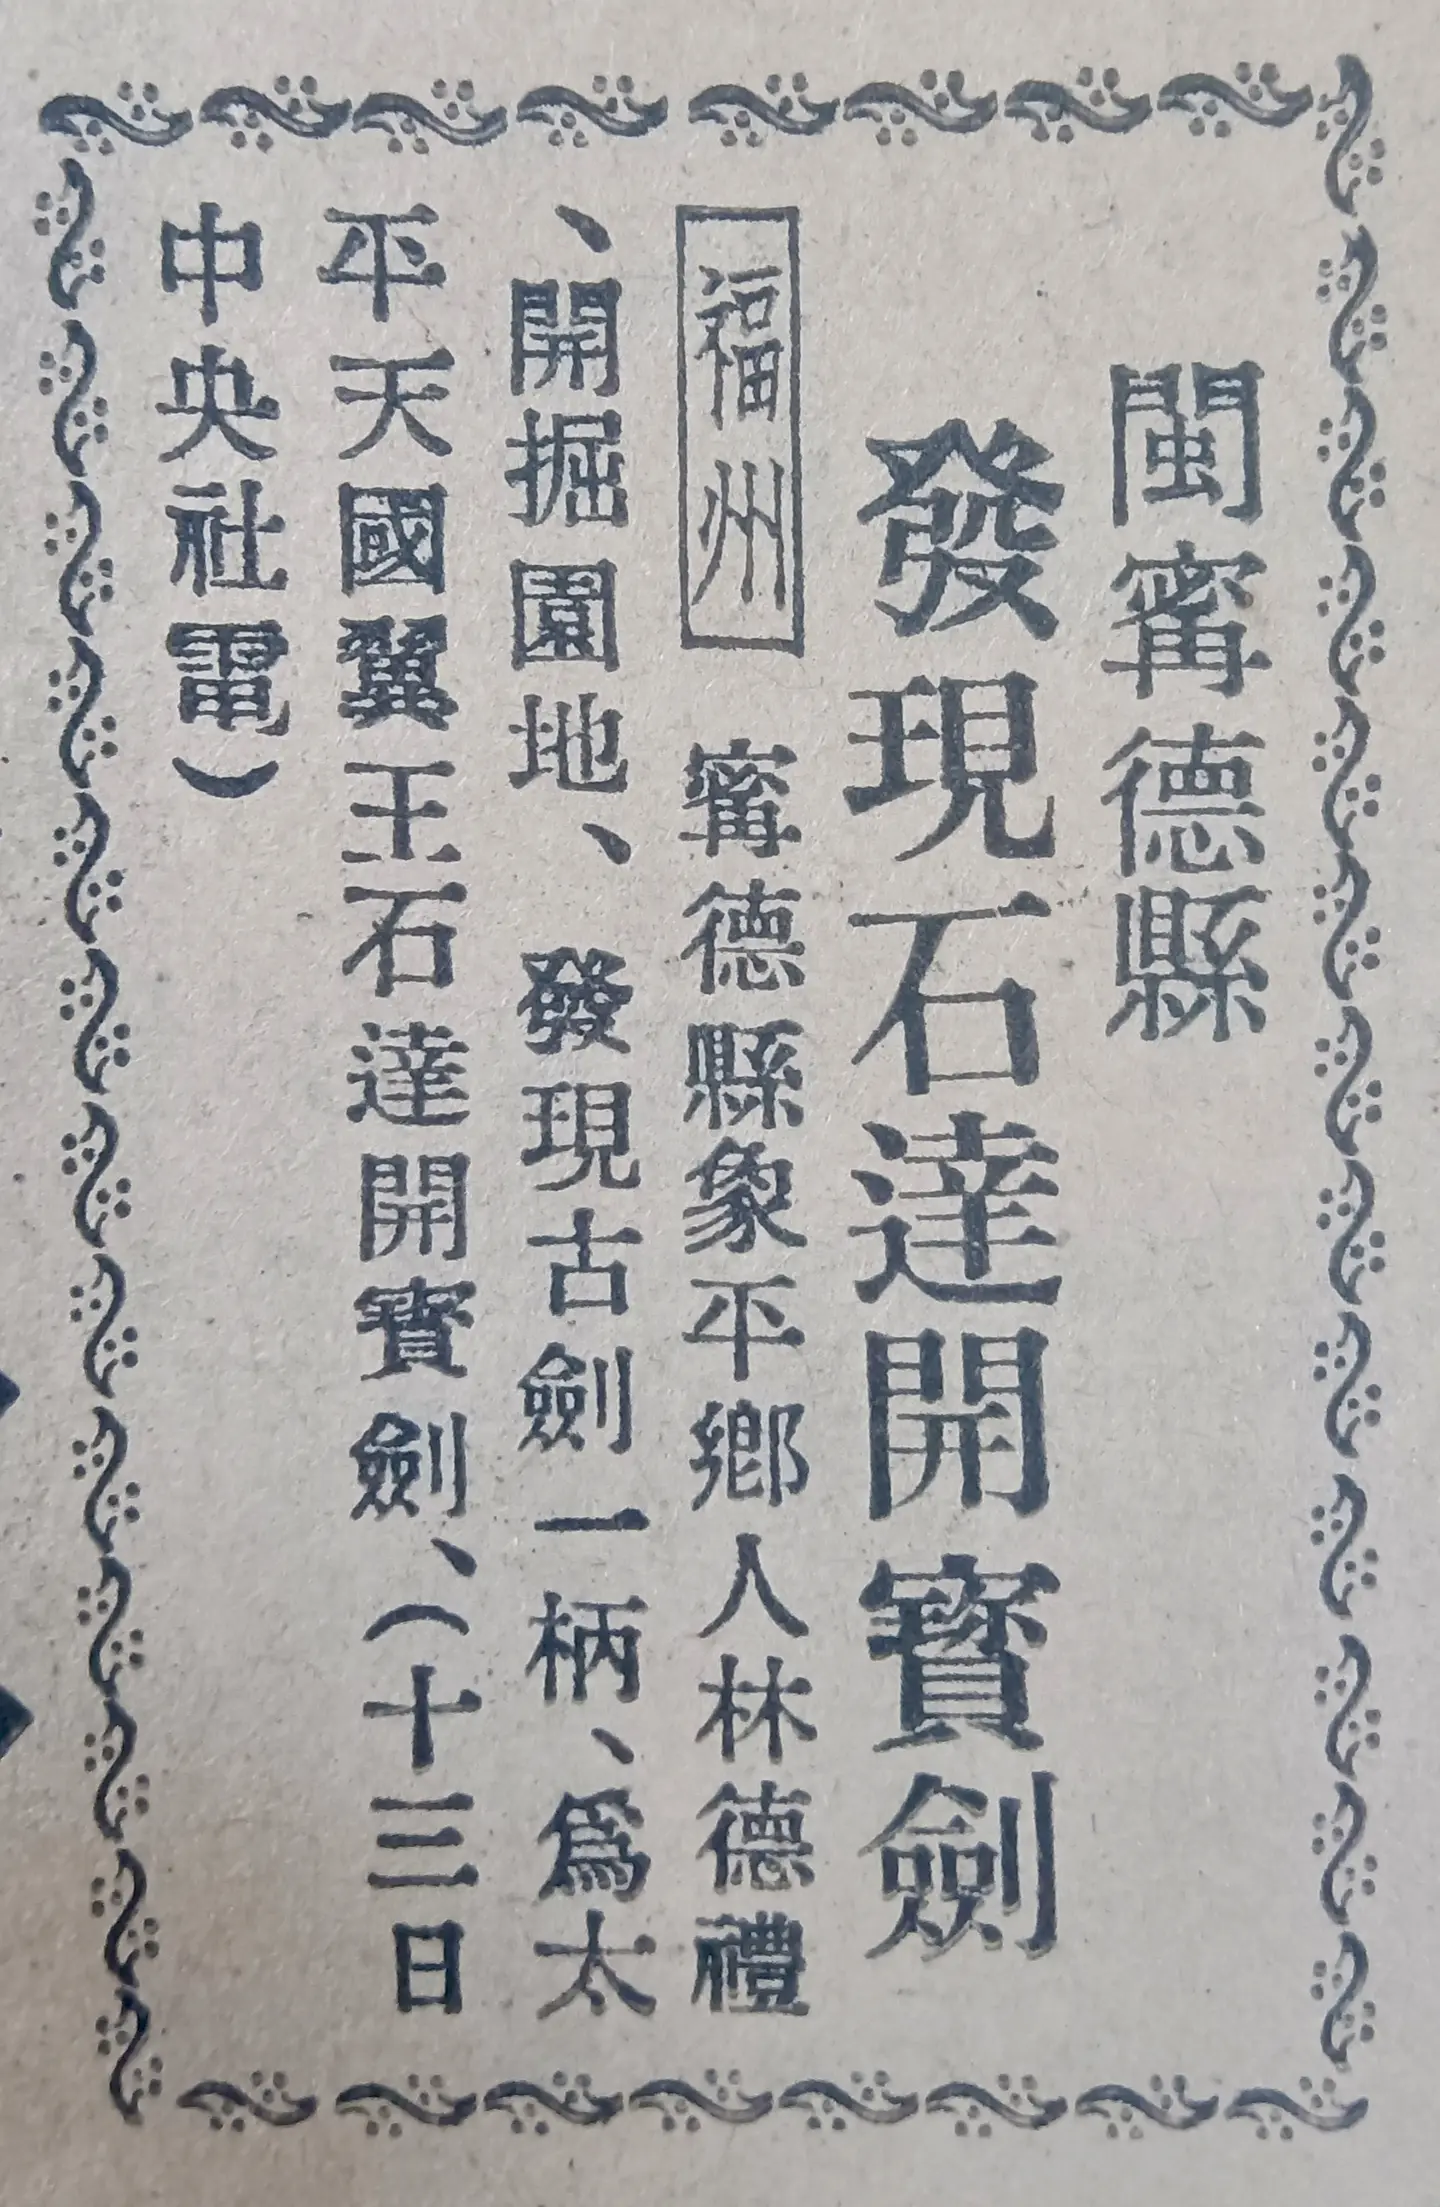 閩甯德縣
發現石達開寶劍
福州 甯德縣象平鄉人林德禮
、開掘園地、發現古劍一柄、爲太
平天國翼王石達開寶劍、（十三日
中央社電）